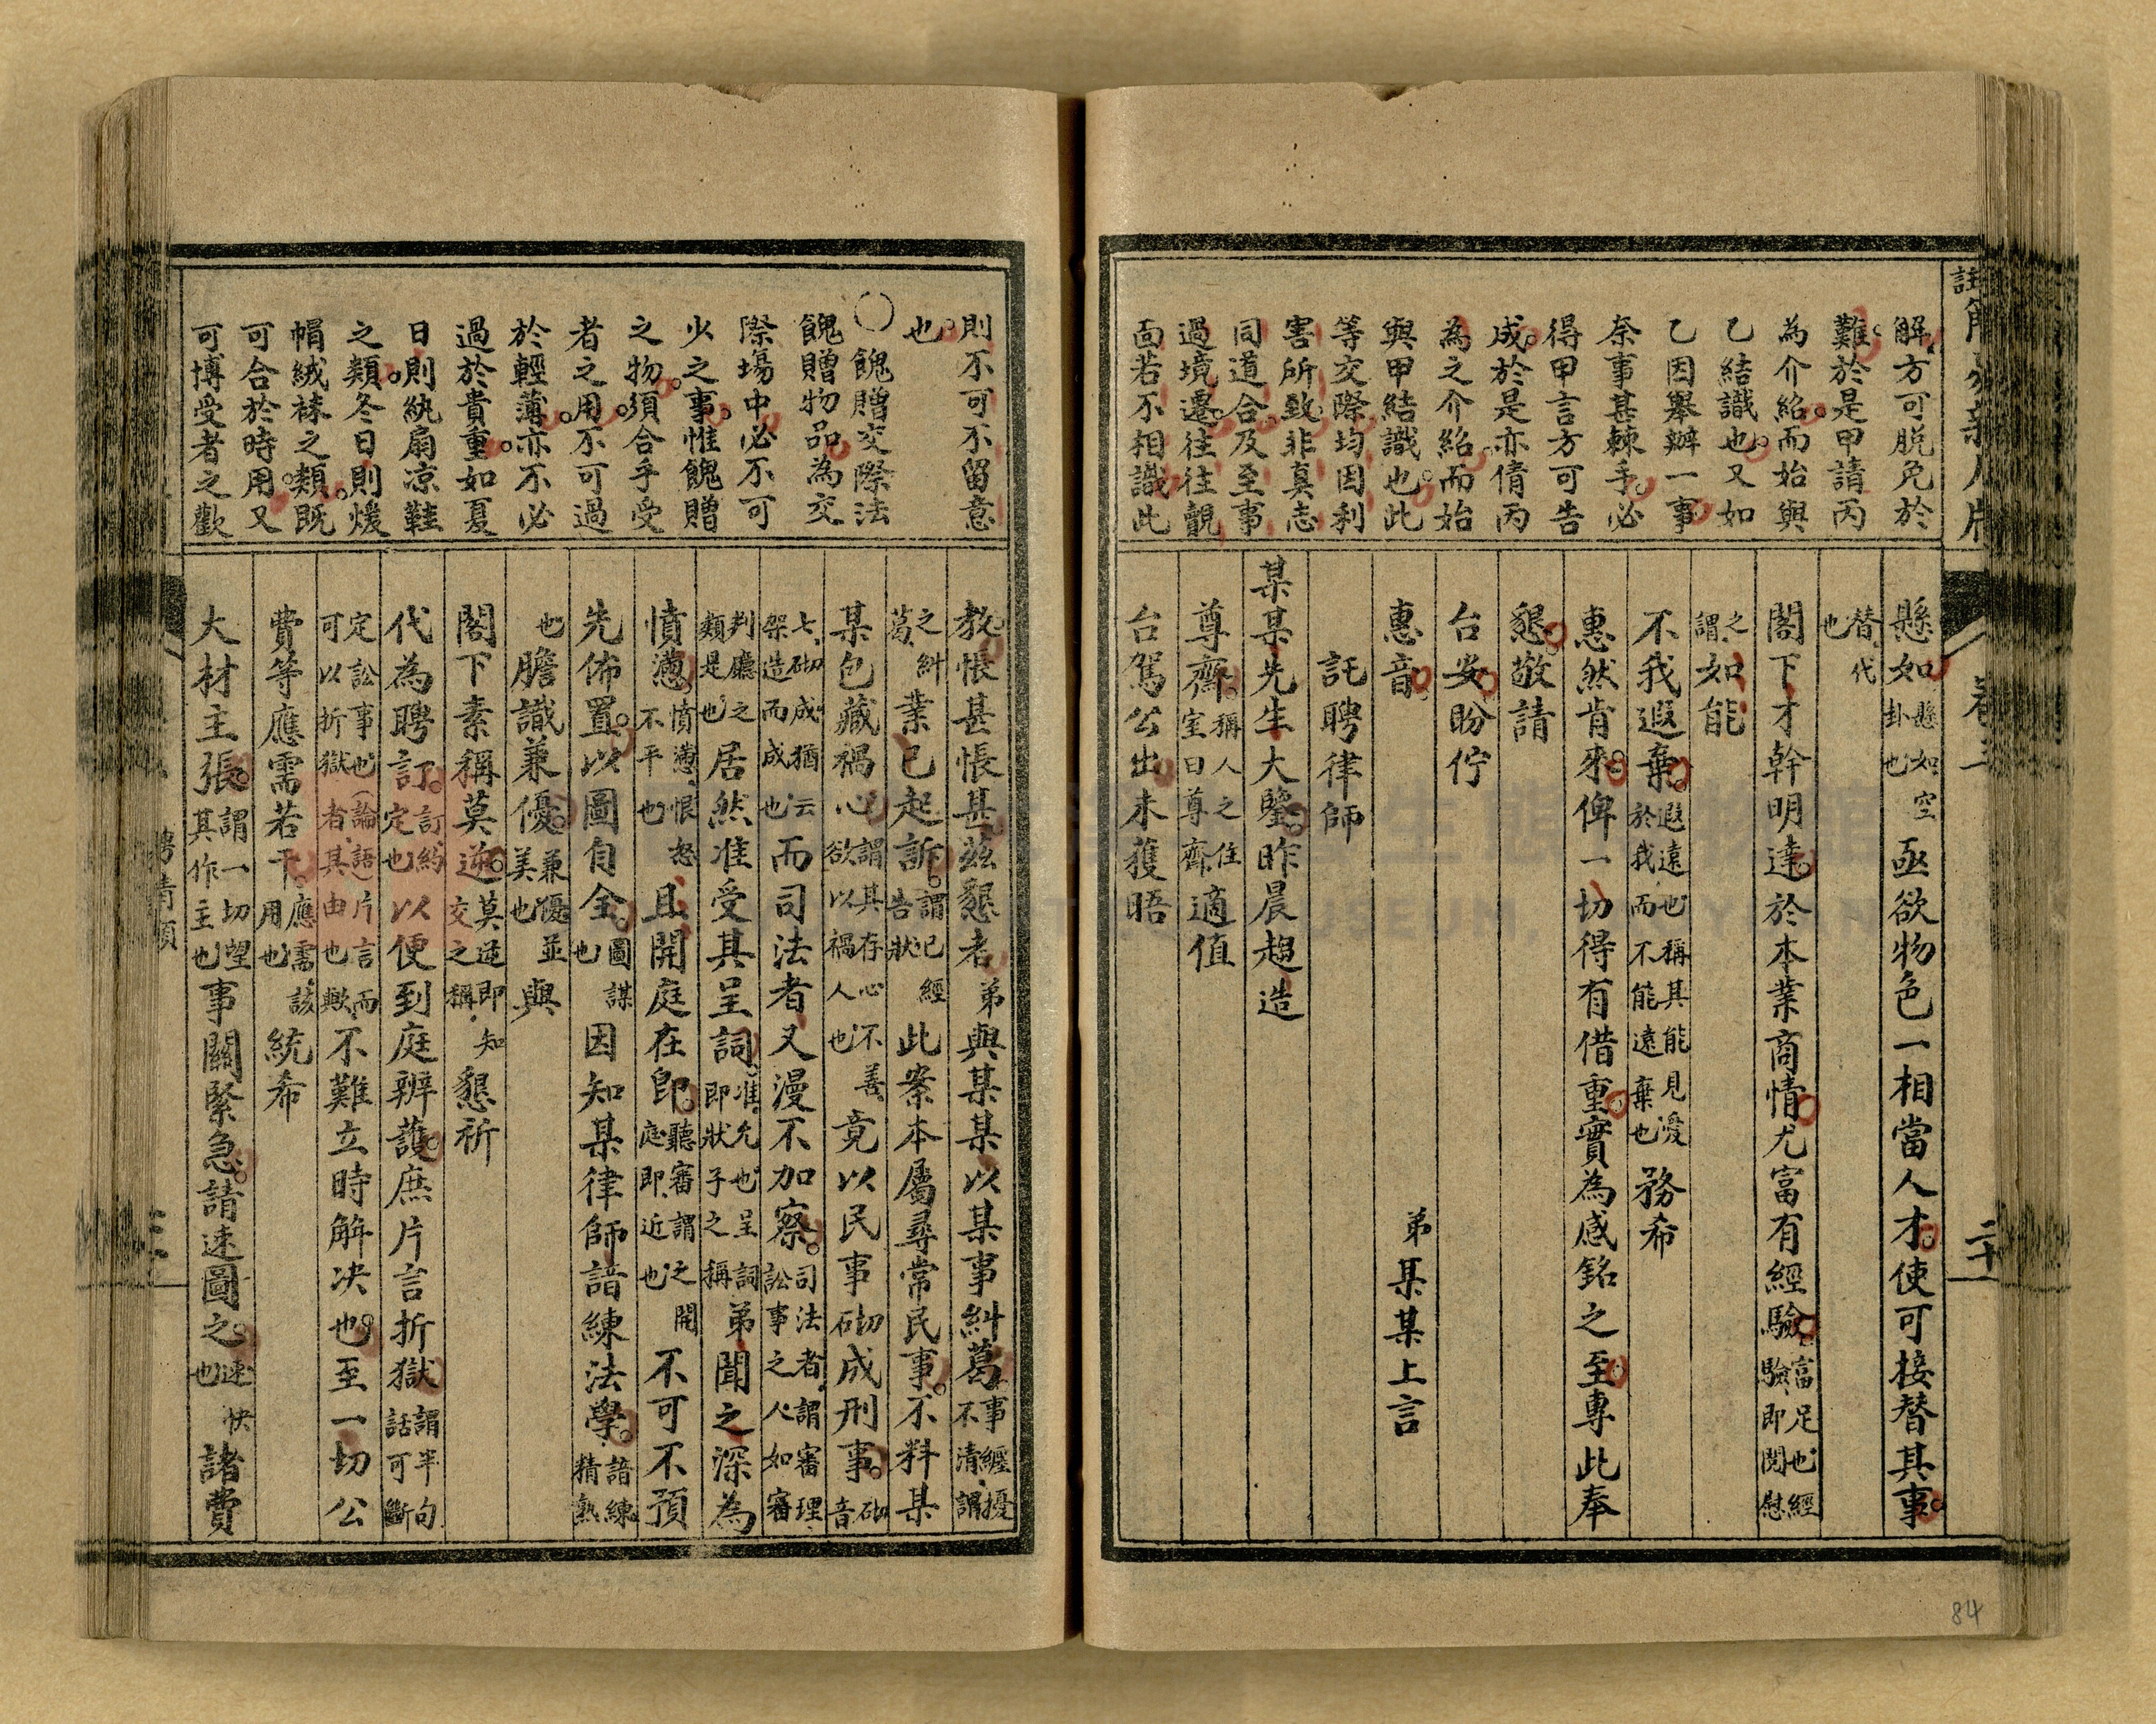 解方可脫免於
難。於是甲請丙
為介紹。而始與
乙結識也。又如
乙因舉辦一事
奈事甚棘手。必
得甲言方可告
成。於是亦倩丙
為之介紹。而始
與甲結識也。此
等交際均因利
害所致。非真志
同道合。及至事
過境遷。往往覿
面若不相識此
懸如懸如空卦也亟欲物色一相當人才。使可接替其事。
替代也
閣下才幹明達。於本業商情。尤富有經驗。富足也經驗即閱慰
之謂如能
不我遐棄。遐遠也稱其能見愛於我而不能遠棄也務希
惠然肯來。俾一切得有借重。實為感銘之至。專此奉
懇。敬請
台安。盼佇
惠音。
弟某某上言
託聘律師
某某先生大鑒。昨晨趨造
尊齋。稱人之住室曰尊齋適值
台駕公出。未獲晤
則不可不留意
也。
〇餽贈交際法
餽贈物品為交
際塲中必不可
少之事。惟餽贈
之物。須合乎受
者之用。不可過
於輕薄。亦不必
過於貴重。如夏
日則紈扇凉鞋
之類。冬日則煖
帽絨袜之類。既
可合於時用。又
可博受者之歡
教。悵甚悵甚。茲懇者。弟與某某以某事糾葛。事經擾不清謂
之糾葛業已起訴。謂已經告狀此案本屬尋常民事。不料某
某包藏禍心謂其存心不善欲以禍人也竟以民事砌成刑事。砌音
七。砌成猶云架造而成也而司法者又漫不加察。司法者。謂審理訟事之人。如審
判廳之類是也居然准受其呈詞。准允也呈詞即狀子之稱弟聞之深為
憤懣。憤懣恨怒不平也且開庭在即。聽審謂之開庭即近也不可不預
先佈置。以圖自全。圖謀也因知某律師諳練法學。諳練精熟
也膽識兼優。兼優並美也與
閣下素稱莫逆。莫逆即知交之稱懇祈
代為聘訂。訂約定也以便到庭辨護。庶片言折獄謂半句話可斷
定訟事也(論語)片言而可以折獄者其由也歟不難立時解決也。至一切公
費等應需若干。應需該用也統希
大材主張。謂一切望其作主也事關緊急。請速圖之。速快也諸費
聘請類
二十
84